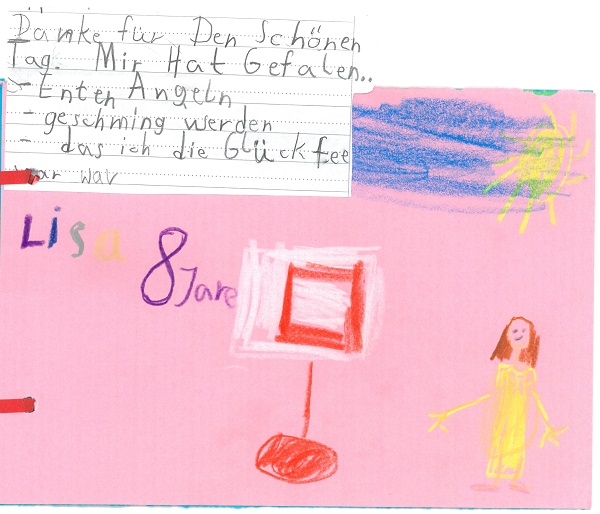 Danke für Den Schönen
Tag. Mir Hat Gefalen..
- Enten Angeln
- geschming werden
- das ich die Glückfee
war
Lisa 8 Jare